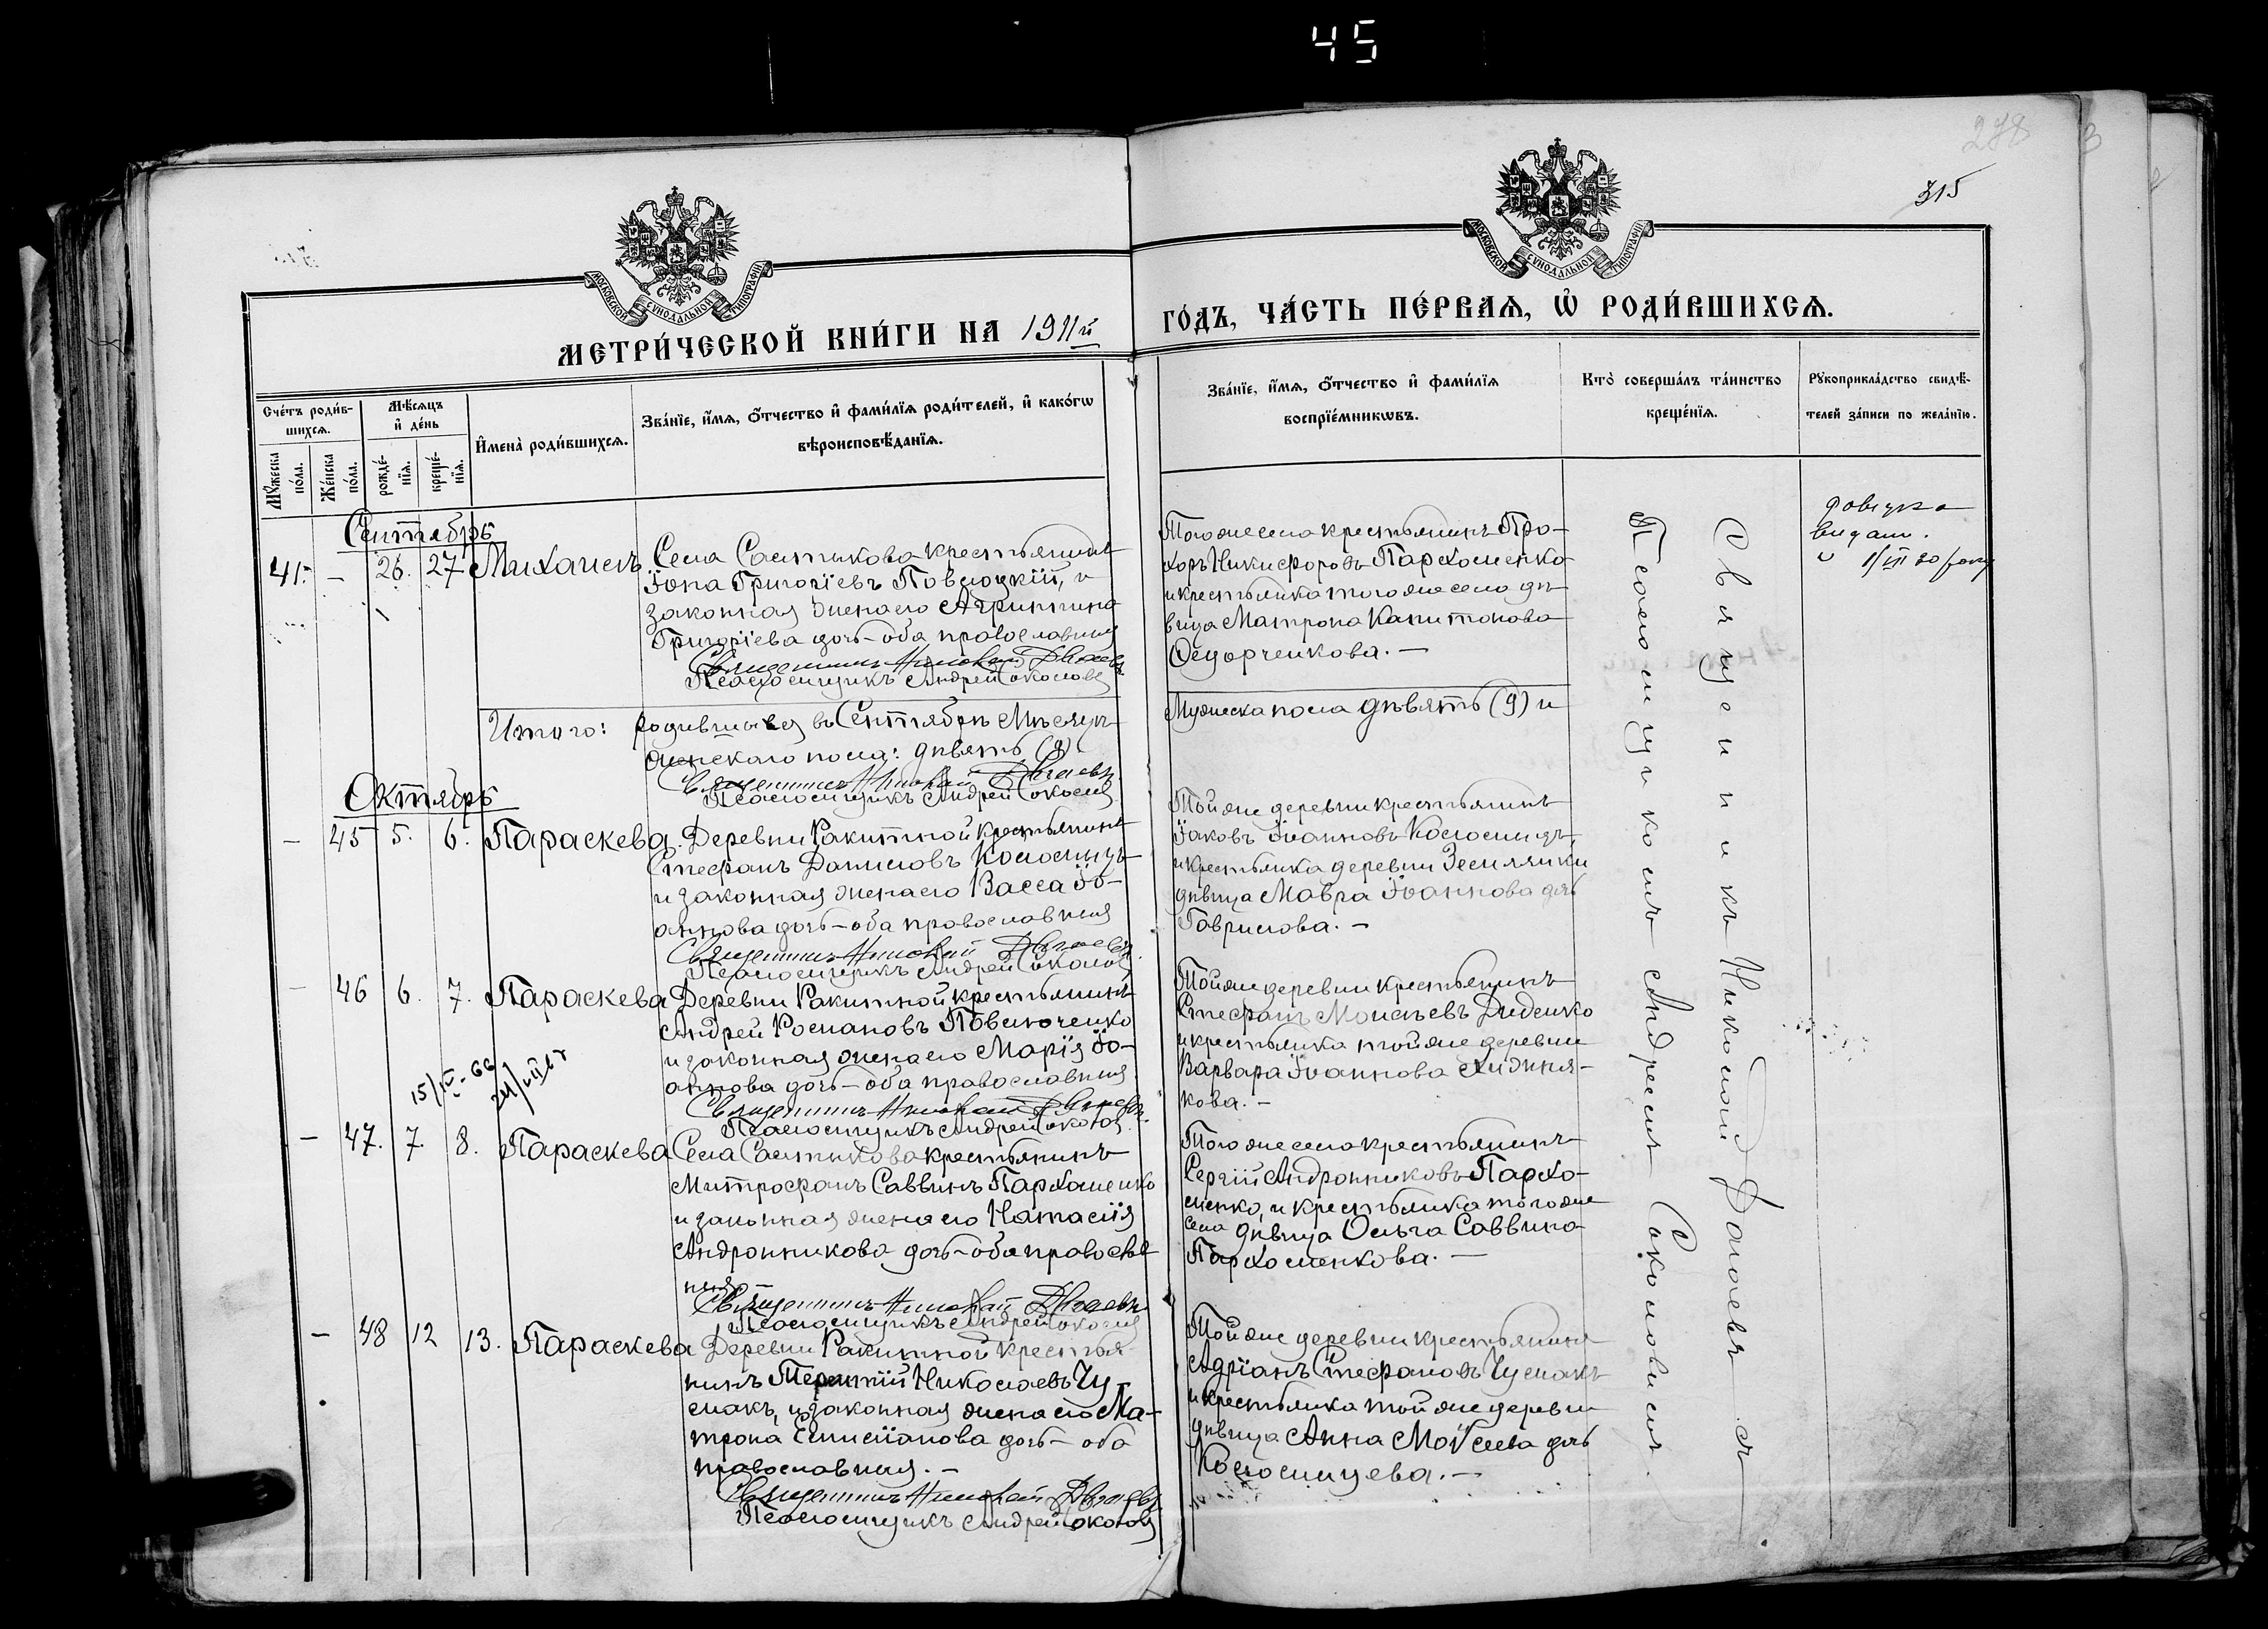 45
278
315
МОСКОВСКОЙ СѴНОДАЛЬНОЙ ТИПОГРАФІИ
МОСКОВСКОЙ СѴНОДАЛЬНОЙ ТИПОГРАФІИ
МЕТРИ́ЧЕСКОЙ КНИ́ГИ НА 1911й
ГО́ДЪ, ЧА́СТЬ ПЕ́РВАѦ, Ѡ҆ РОДИ́ВШИХСѦ.
Сче́тъ роди́в-
шихсѧ.
Мꙋ́жеска по́ла.
Же́нска по́ла.
Мѣ́сѧцъ
и҆ де́нь
рожде́-
нїѧ.
креще́-
нїѧ.
И҆мена̀ роди́вшихсѧ.
Зва́нїе, и҆́мѧ, ѻ҆́тчество и҆ фами́лїѧ роди́телей, и҆ како́гѡ
вѣроисповѣ́данїѧ.
Зва́нїе, и҆́мѧ, ѻ҆́тчество и҆ фами́лїѧ
воспрїе́мникѡвъ.
Кто̀ соверша́лъ та́инство
креще́нїѧ.
Рꙋкоприкла́дство свидѣ́-
телей за́писи по жела́нїю.
Сентябрь
41. – 26. 27 Михаилъ
Села Салтыкова крестьянинъ
Іона Григоріевъ Повлоцкій, и
законная жена его Агриппина
Григоріева дочь – оба православныя
Священникъ Николай
Псаломщикъ Андрей Соколовъ
Того же села крестьянинъ Про-
хоръ Никифоровъ Пархоменко
и крестьянка того же села дѣ-
вица Матрона Капитонова
Ѳедорченкова. –
довідка
видана
1/III 20 року
Итого: родившихся въ Сентябрѣ мѣсяцѣ
Мужеска пола девять (9) и
женскаго пола: девять (9)
Священникъ Николай
Псаломщикъ Андрей Соколовъ
Октябрь
– 45 5. 6. Параскева.
Деревни Ракитной крестьянинъ
Стефанъ Даниловъ Коломыцъ
и законная жена его Васса Іо-
аннова дочь – оба православныя
Священникъ Николай
Псаломщикъ Андрей Соколовъ
Той же деревни крестьянинъ
Іаковъ Іоанновъ Коломыцъ,
и крестьянка деревни Землянки
дѣвица Мавра Іоаннова дочь
Гаврилова. –
– 46 6. 7. Параскева
Деревни Ракитной крестьянинъ
Андрей Романовъ Павлюченко
и законная жена его Марія Іо-
аннова дочь – оба православныя
Священникъ Николай
Псаломщикъ Андрей Соколовъ
Той же деревни крестьянинъ
Стефанъ Моисѣевъ Диденко
и крестьянка той же деревни
Варвара Іоаннова
кова. –
15/IV-66
– 47. 7. 8. Параскева
Села Салтыкова крестьянинъ
Митрофанъ Саввинъ Пархоменко
и законная жена его Наталія
Андронникова дочь – оба правосла
ныя –
Священникъ Николай
Псаломщикъ Андрей Соколовъ
Того же села крестьянинъ
Сергій Андронниковъ Пархо-
менко, и крестьянка того же
села дѣвица Ольга Саввина
Пархоменкова. –
– 48 12 13. Параскева
Деревни Ракитной крестья
нинъ Терентій Николаевъ Чу
макъ, и законная жена его Ма-
трона Емиліанова дочь – оба
православныя. –
Священникъ Николай
Псаломщикъ Андрей Соколовъ
Той же деревни крестьянинъ
Адріанъ Стефановъ Чумакъ
и крестьянка той же деревни
дѣвица Анна Моѵсеева дочь
Коломыцева. –
Священникъ Николай съ
Псаломщикомъ Андреемъ Соколовымъ.